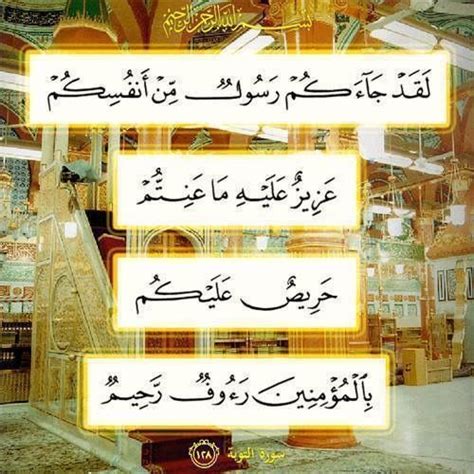 بِسْمِ اللهِ الرَّحْمٰنِ الرَّحِيمِ
لَقَدۡ جَآءَكُمۡ رَسُولٌ مِّنۡ أَنفُسِكُمۡ
عَزِيزٌ عَلَيۡهِ مَا عَنِتُّمۡ
حَرِيصٌ عَلَيۡكُم
بِٱلۡمُؤۡمِنِينَ رَءُوفٌ رَّحِيمٌ
سورة التوبة ١٢٨